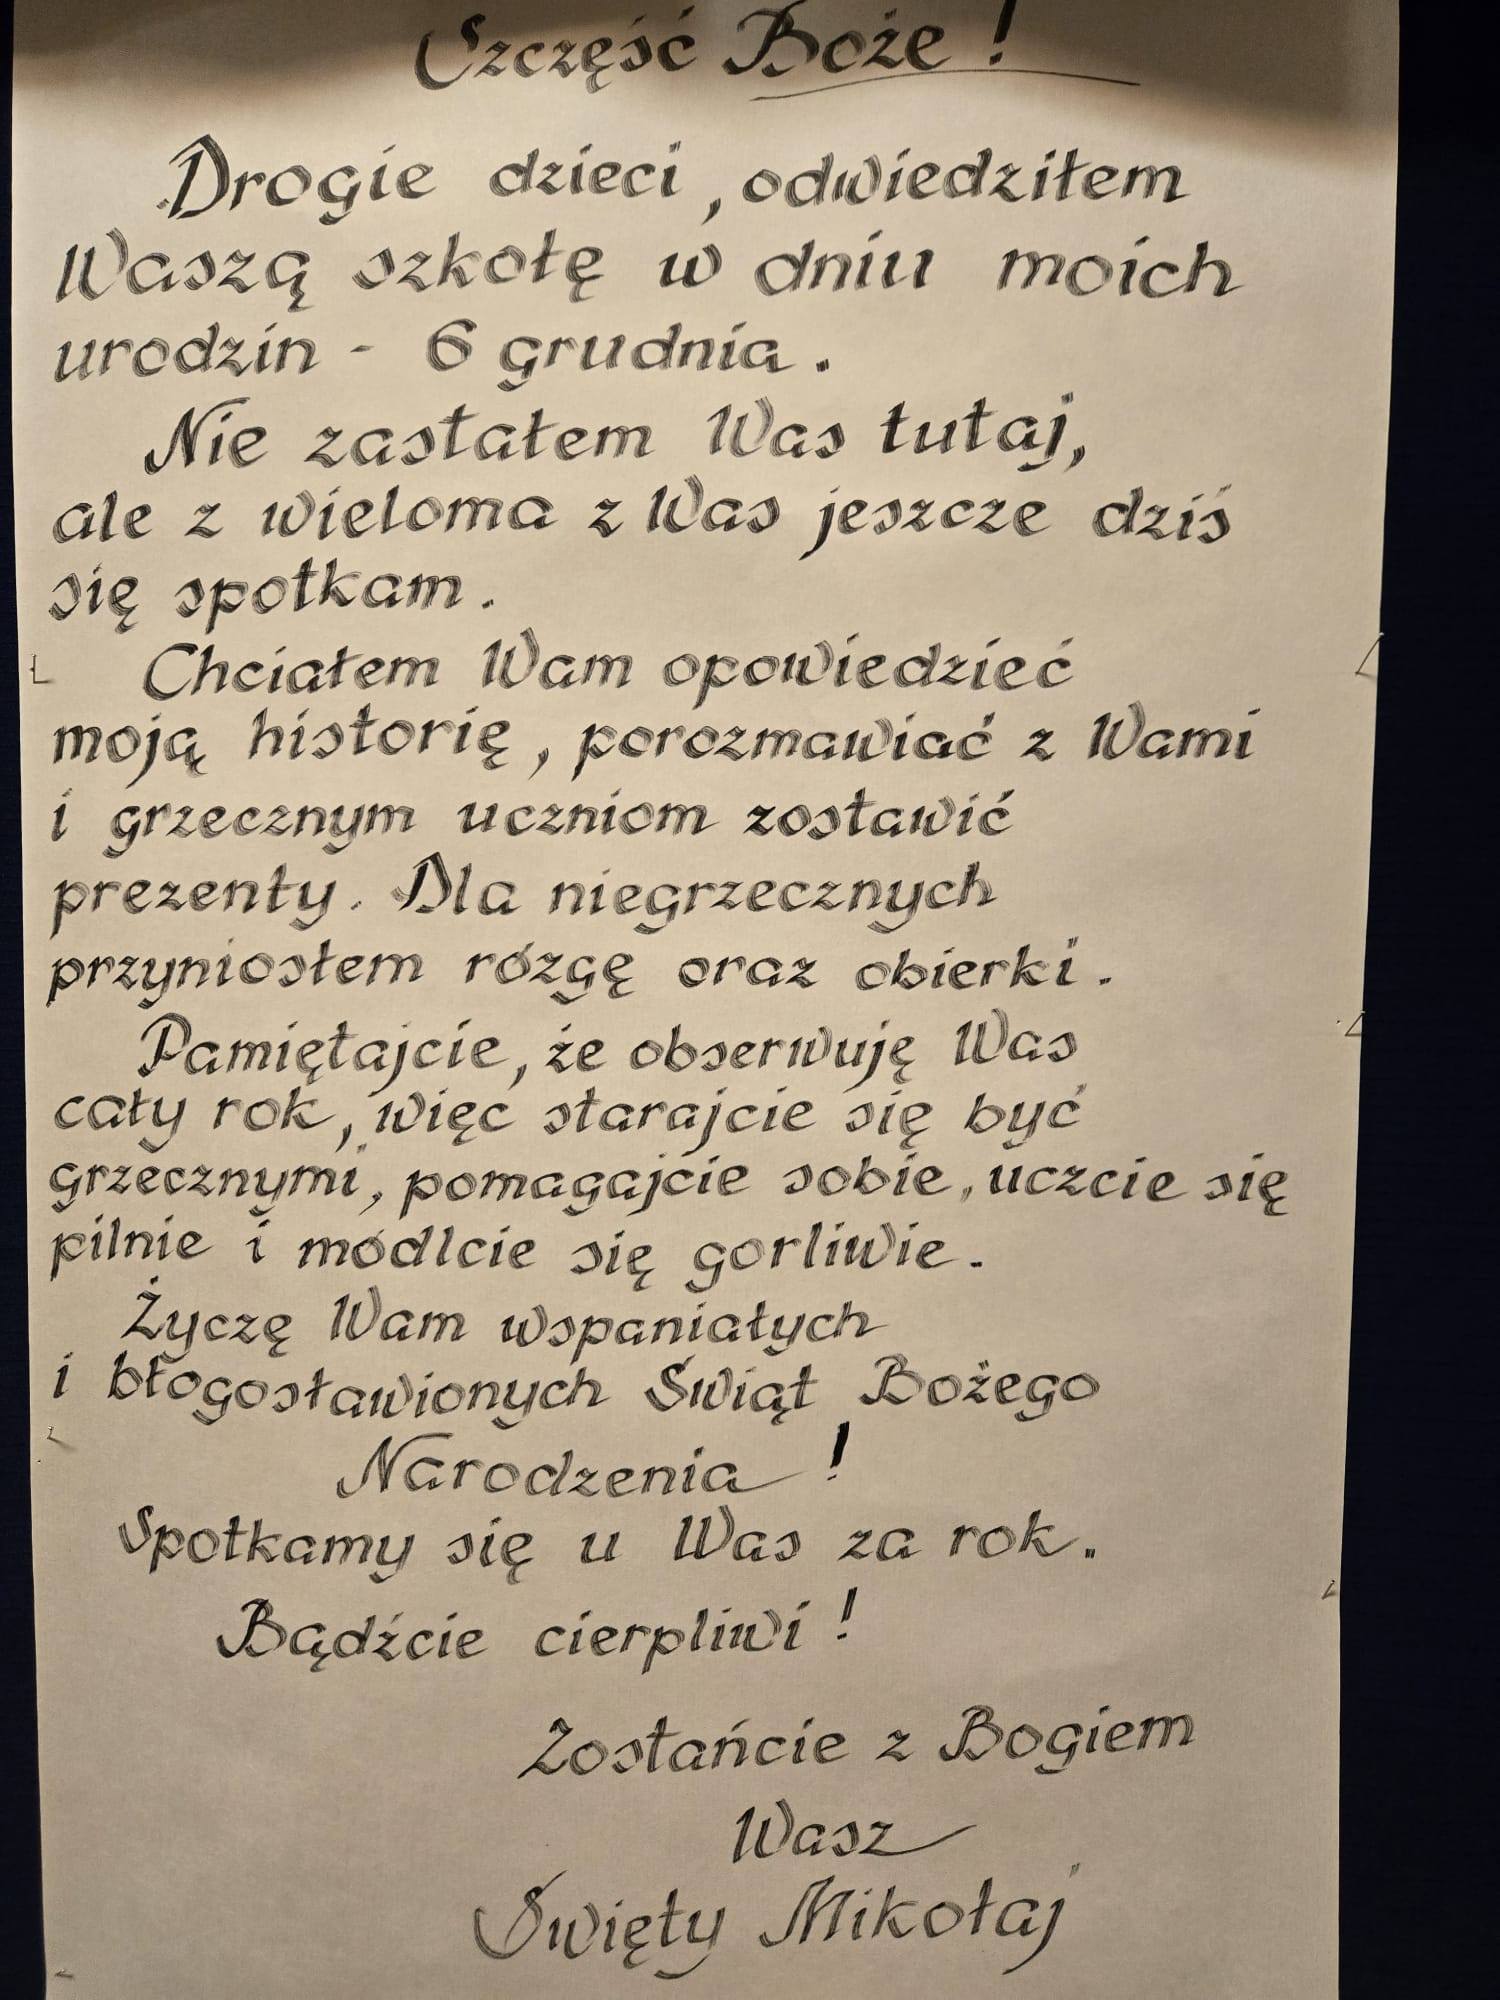 Szczęść Boże !
Drogie dzieci, odwiedziłem
Waszą szkołę w dniu moich
urodzin - 6 grudnia.
Nie zastałem Was tutaj,
ale z wieloma z Was jeszcze dziś
się spotkam.
Chciałem Wam opowiedzieć
moją historię, porozmawiać z Wami
i grzecznym uczniom zostawić
prezenty. Dla niegrzecznych
przyniosłem rózgę oraz obierki.
Pamiętajcie, że obserwuję Was
cały rok, więc starajcie się być
grzecznymi, pomagajcie sobie, uczcie się
pilnie i módlcie się gorliwie.
Życzę Wam wspaniałych
i błogosławionych Świąt Bożego
Narodzenia !
Spotkamy się u Was za rok.
Bądźcie cierpliwi !
Zostańcie z Bogiem
Wasz
Święty Mikołaj